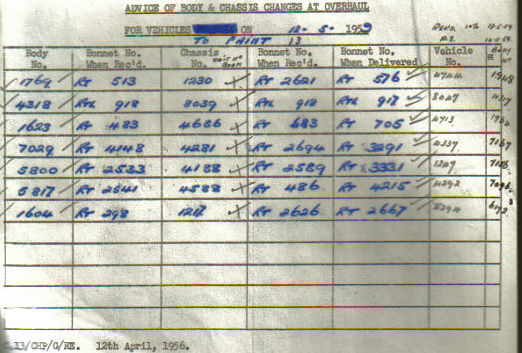 ADVICE OF BODY & CHASSIS CHANGES AT OVERHAUL
FOR VEHICLES ON 12-5-1959
TO PAINT 13
Body No. Bonnet No. When Rec'd. Chassis No. Bonnet No. When Rec'd. Bonnet No. When Delivered Vehicle No. Body
1769 RT 513 1230 RT 2621 RT 576 4744 1948
4318 RTL 918 8039 RTL 918 RTL 917 8047 4317
1623 RT 483 4686 RT 683 RT 705 4713
7029 RT 4148 4281 RT 2694 RT 3291 4339 7167
5800 RT 2533 4188 RT 2589 RT 3331
6817 RT 2541 4588 RT 486 RT 4215 4292
1604 RT 298 1217 RT 2626 RT 2667
13/CHP/G/RE. 12th April, 1956.